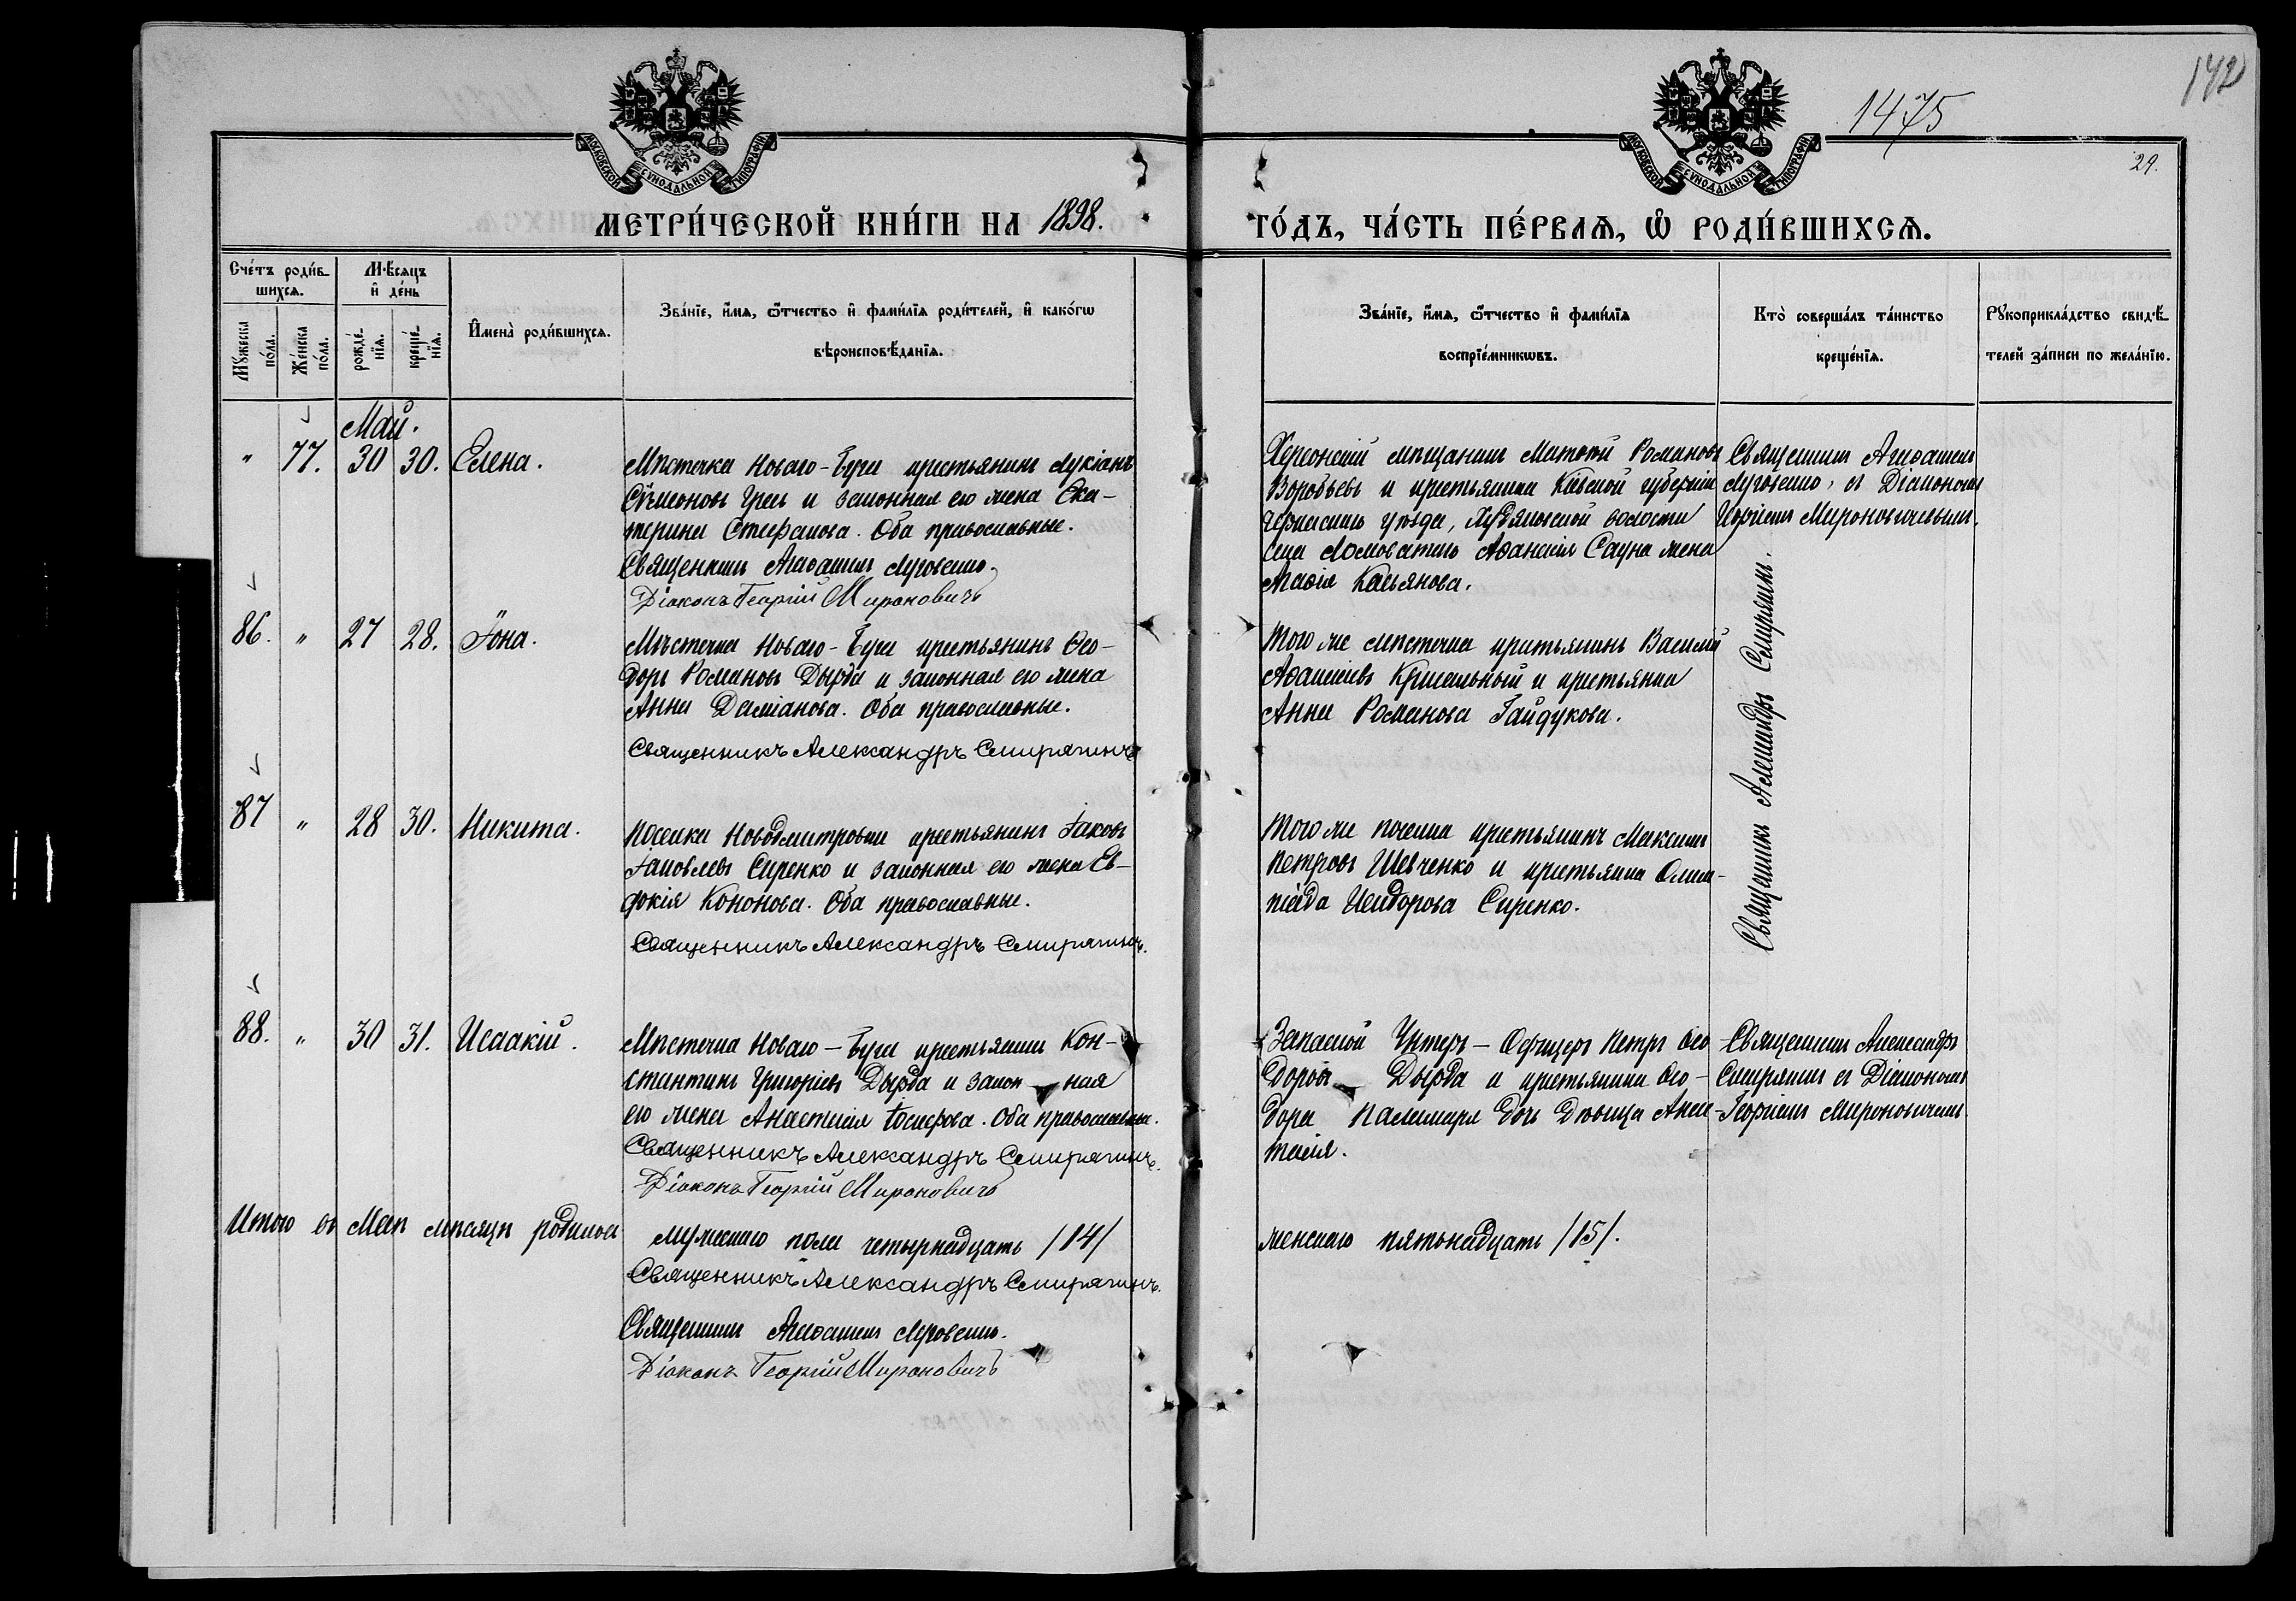 142
1475
29.
МОСКОВСКОЙ СѴНОДАЛЬНОЙ ТИПОГРАФІИ
МОСКОВСКОЙ СѴНОДАЛЬНОЙ ТИПОГРАФІИ
МЕТРИ́ЧЕСКОЙ КНИ́ГИ НА 1898.
ГО́ДЪ, ЧА́СТЬ ПЕ́РВАЯ, Ѡ РОДИ́ВШИХСЯ.
Сче́тъ роди́вшихся.
Мѣ́сяцъ и де́нь
Му́жеска по́ла.
Же́нска по́ла.
рожде́нія.
креще́нія.
Имена̀ роди́вшихся.
Зва́ніе, и́мя, ѻ́тчество и фами́лія роди́телей, и како́гѡ
вѣроисповѣ́данія.
Зва́ніе, и́мя, ѻ́тчество и фами́лія
воспріе́мникѡвъ.
Кто̀ соверша́лъ та́инство
креще́нія.
Рꙋкоприкла́дство свидѣ́телей за́писи по жела́нію.
Май.
" 77. 30 30. Елена.
Мѣстечка Новаго-Буга крестьянинъ Лукіанъ
Сѵмеоновъ Грель и законная его жена Ека-
терина Стефанова. Оба православные.
Священникъ Агаѳангелъ Луговенко.
Діаконъ Георгій Мироновичъ
Херсонскій мѣщанинъ Матѳей Романовъ
Воробьевъ и крестьянина Кіевской губерніи
Черкасскаго уѣзда, Худяковской волости
села Ломоватаго Аѳанасія Сауна жена
Агаѳія Касьянова.
Священникъ Агаѳангелъ
Луговенко, съ Діакономъ
Георгіемъ Мироновичемъ.
86. " 27 28. Іона.
Мѣстечка Новаго-Буга крестьянинъ Ѳео-
доръ Романовъ Дырда и законная его жена
Анна Даміанова. Оба православные.
Священникъ Александръ Смирягинъ
Того же мѣстечка крестьянинъ Василій
Аѳанасіевъ и крестьянка
Анна Романова Гайдукова.
Священникъ Александръ Смирягинъ.
87 " 28 30. Никита.
Поселка Новодмитровки крестьянинъ Іаковъ
Іаковлевъ Сиренко и законная его жена Ев-
докія Кононова. Оба православные.
Священникъ Александръ Смирягинъ.
Того же поселка крестьянинъ Максимъ
Петровъ Шевченко и крестьянка Олим-
піада Исидорова Сиренко.
88. " 30 31. Исаакій.
Мѣстечка Новаго-Буга крестьянинъ Кон-
стантинъ Григоріевъ Дырда и закон ная
его жена Анастасія Іосифова. Оба православные.
Священникъ Александръ Смирягинъ.
Діаконъ Георгій Мироновичъ
Запасной Унтеръ-Офицеръ Петръ Ѳео
доровъ Дырда и крестьянина Ѳео-
дора Паламаря дочь дѣвица Анас-
тасія.
Священникъ Александръ
Смирягинъ съ Діакономъ
Георгіемъ Мироновичемъ
Итого въ Маѣ мѣсяцѣ родилось мужескаго пола четырнадцать /14/
женскаго пятьнадцать /15/.
Священникъ Александръ Смирягинъ.
Священникъ Агаѳангелъ Луговенко.
Діаконъ Георгій Мироновичъ